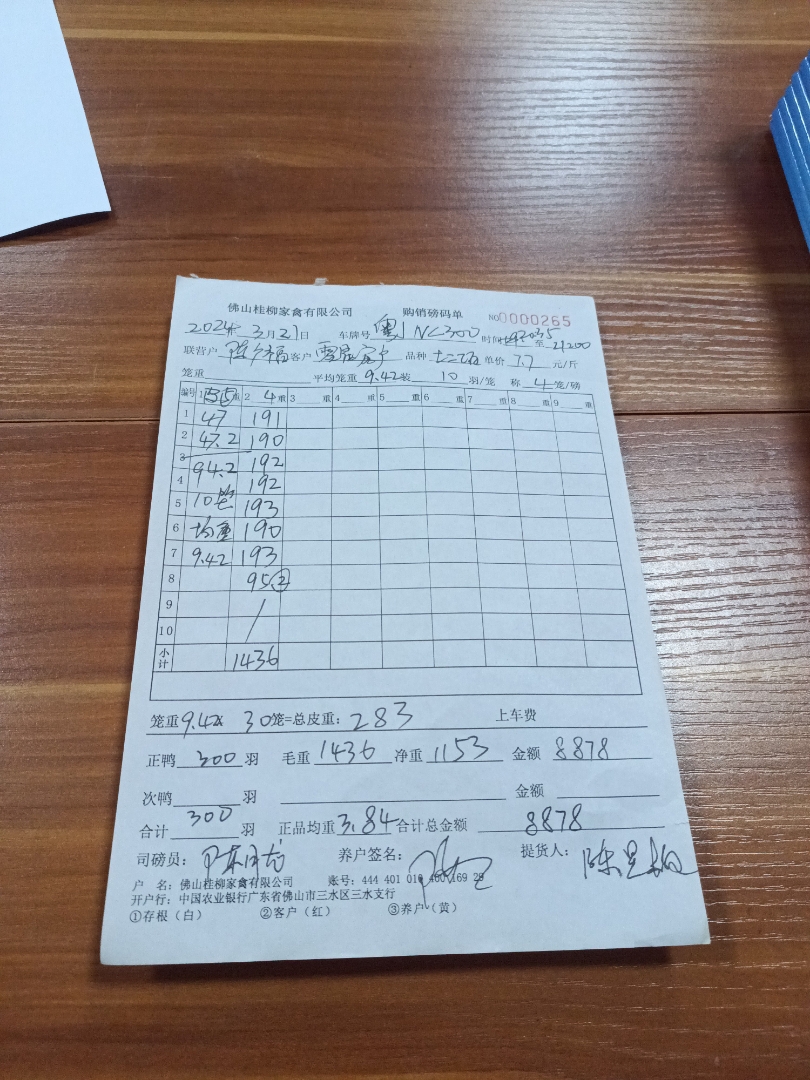 佛山桂柳家禽有限公司 购销磅码单 NO 0000265
2024年3月21日 车牌号 粤J NC300 时间 至 21200
联营户 客户 品种 单价 7.7 元/斤
笼重 平均笼重 9.42 装 10 羽/笼 称 4 笼/磅
编号 1 重 2 4 重 3 重 4 重 5 重 6 重 7 重 8 重 9 重
1 47 191
2 47.2 190
3 94.2 192
4 192
5 10笼 193
6 均重 190
7 9.42 193
8 95②
9
10
小计 1436
笼重 9.42 x 30笼=总皮重: 283 上车费
正鸭 300 羽 毛重 1436 净重 1153 金额 8878
次鸭 羽 金额
合计 300 羽 正品均重 3.84 合计总金额 8878
司磅员: 养户签名: 提货人:
户 名: 佛山桂柳家禽有限公司 账号: 444 401 010 400 169 29
开户行: 中国农业银行广东省佛山市三水区三水支行
①存根(白) ②客户(红) ③养户(黄)